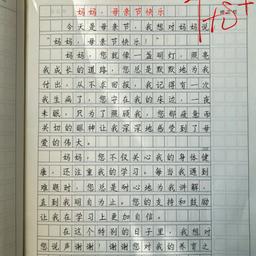 妈妈,母亲节快乐
今天是母亲节,我想对妈妈说
"妈妈,母亲节快乐!"
妈妈,您就像一盏明灯,照亮
我成长的道路,您总是默默地为我
付出,从不求回报,我记得有一次
我生病了,您守在我的床边,一夜
未眠,只为了照顾我,您那疲惫而
关切的眼神让我深深地感受到了母
爱的伟大。
妈妈,您不仅关心我的身体健
康,还注重我的学习。每当我遇到
难题时,您总是耐心地为我讲解,
直到我明白为止。您的支持和鼓励
让我在学习上更加自信。
在这个特别的日子里,我想对
您说声谢谢!谢谢您对我的养育之